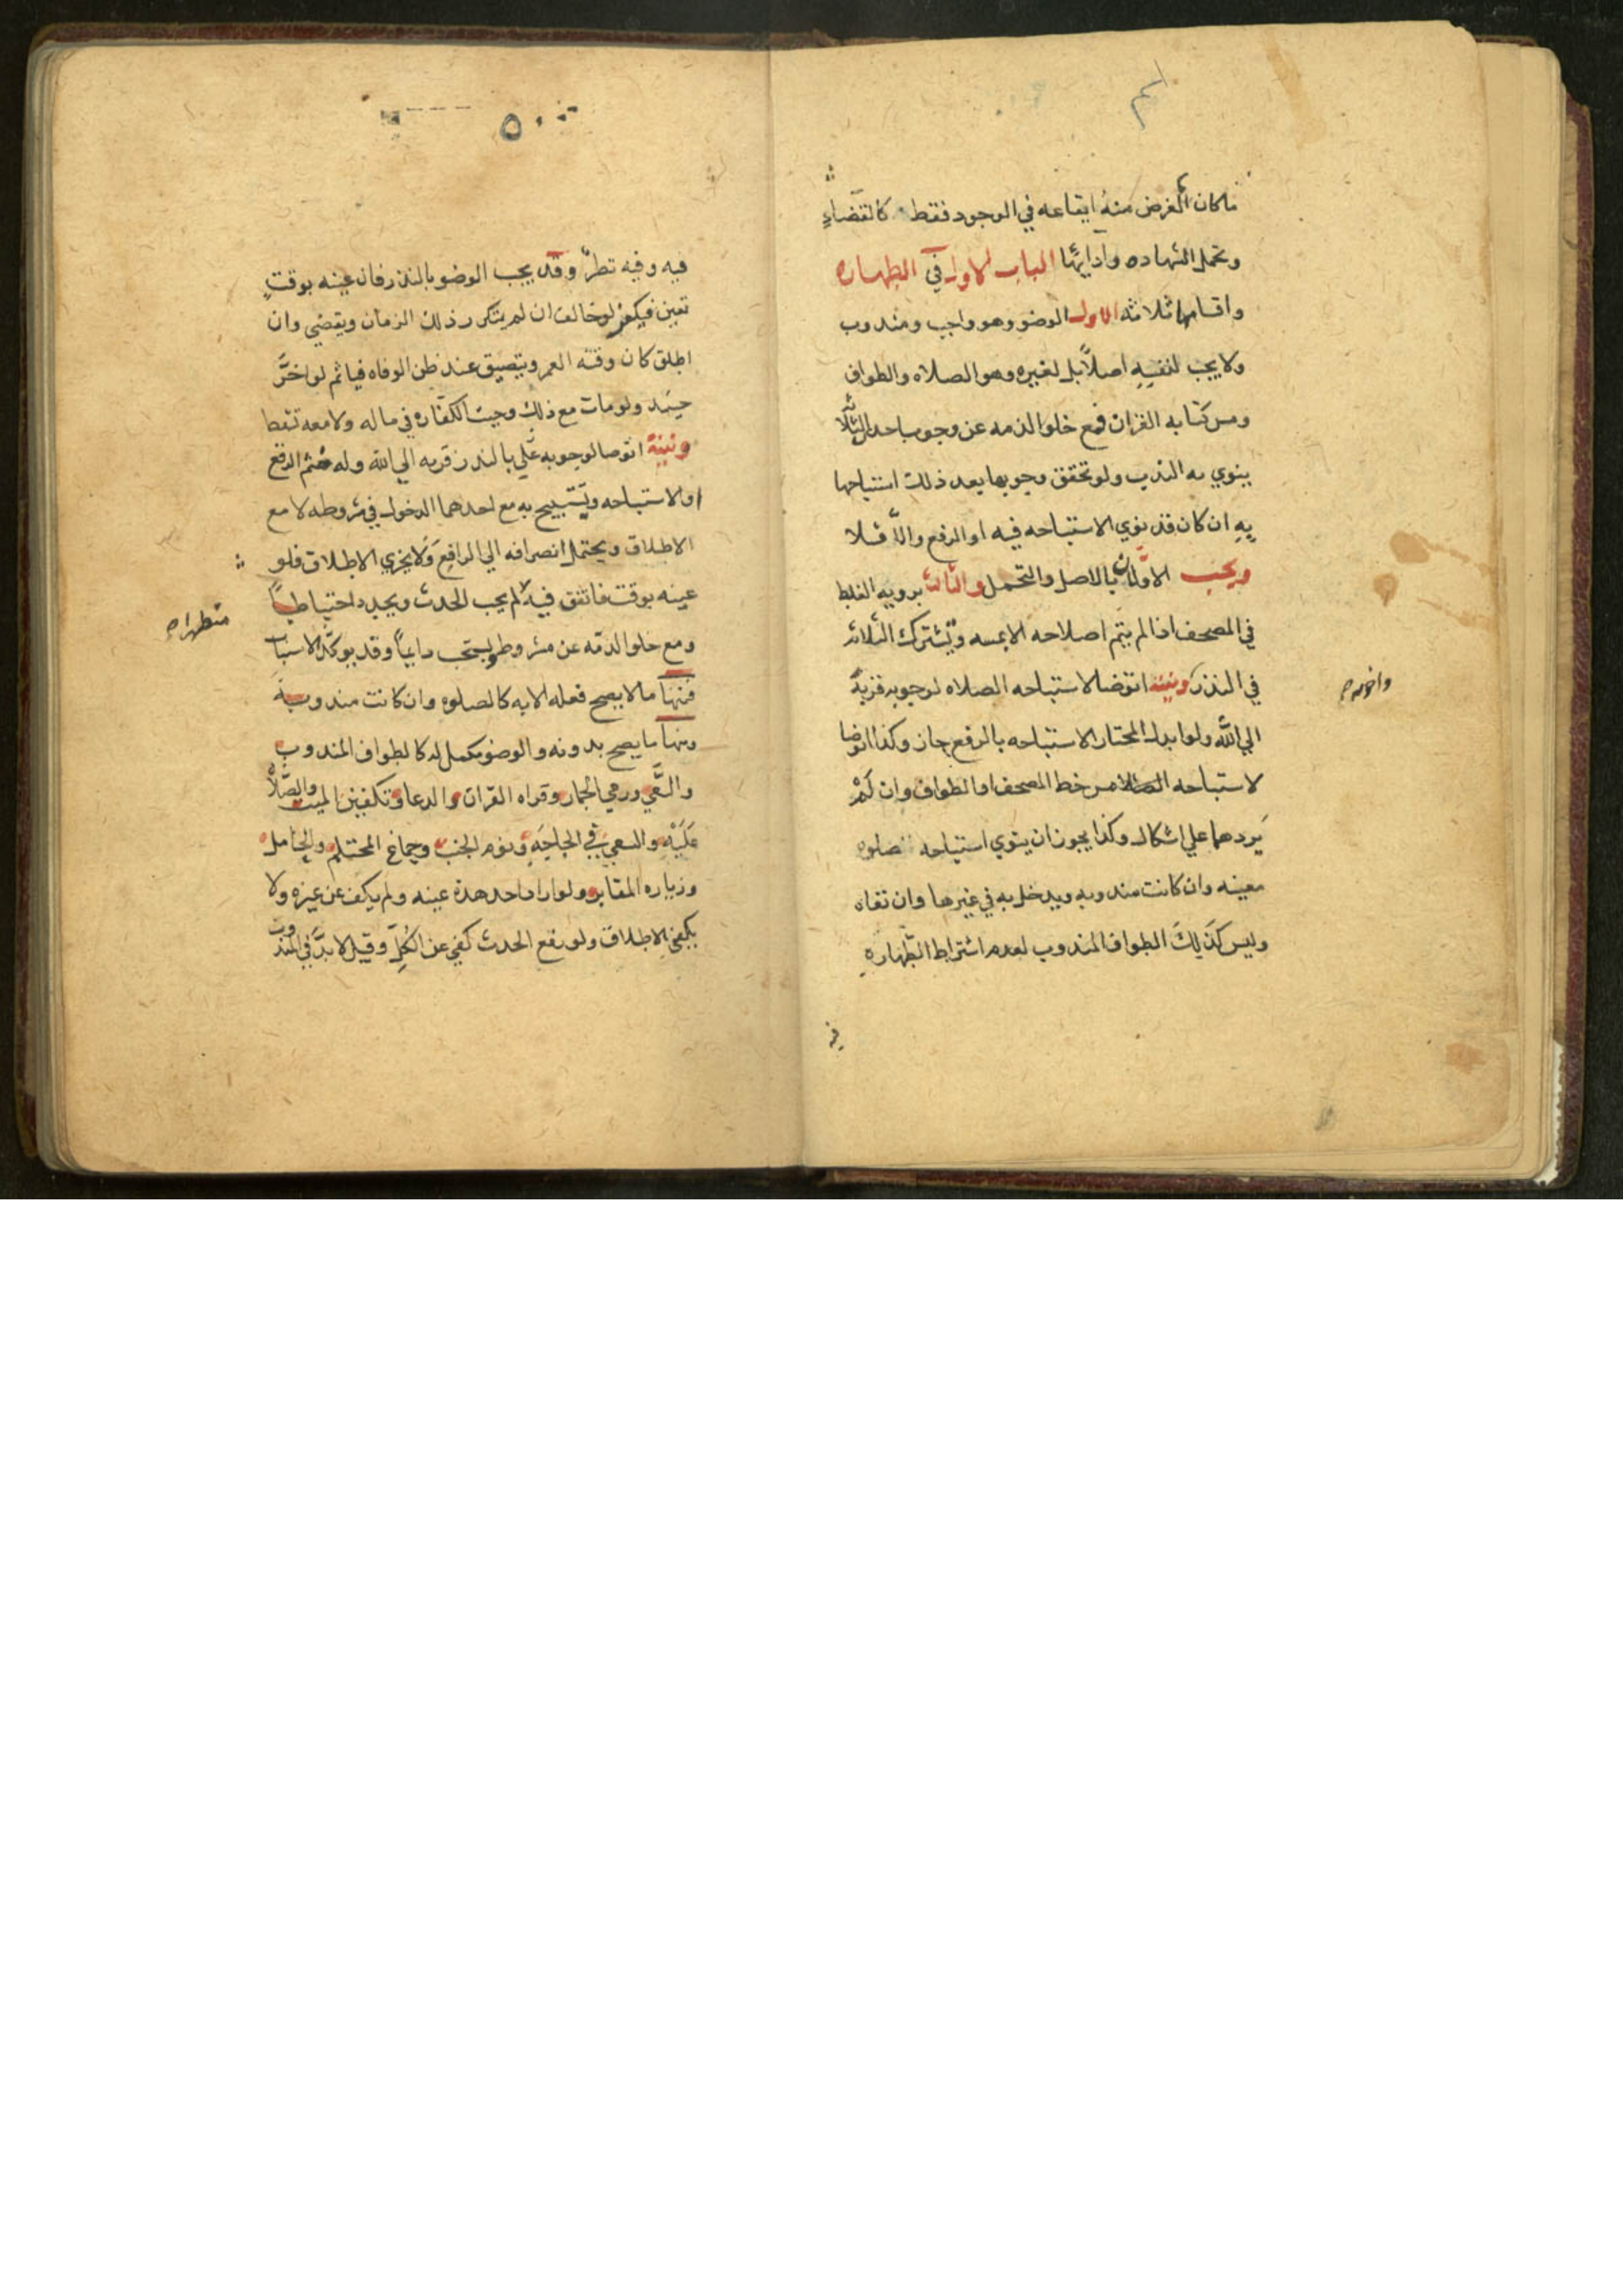 ما كان الغرض منه ايقاعه في الوجود فقط كالقضاءِ
وتحمل الشهاده وادايها الباب الاول في الطهاره
واقسامها ثلاثه الاول الوضو وهو واجب ومندوب
ولا يجب لنفسِهِ اصلاً بل لغيره وهو الصلاه والطواف
ومس كتابه القران فمع خلو الذمه عن وجوب احد الثلاثه
ينوي به الندب ولو تحقق وجوبها بعد ذلك استباحها
بِهِ ان كان قد نوي الاستباحه فيه او الرفع والّا فلا
ويجب الاوّلان بالاصل والتحمل والثالث برويه الغلط
في المصحف اذا لم يتم اصلاحه الا بمسه وتشترك الثلاثه
في النذر ونيته اتوضا لاستباحه الصلاه لوجوبه قربةً
الي الله ولو ابدل المختار الاستباحه بالرفع جاز وكذا اتوضا
لاستباحه مس خط المصحف او الطواف وان لَمْ
يَردهما علي اشكال وكذا يجوز ان ينوي استباحه صلوه
معينه وان كانت مندوبه ويدخل به في غيرها وان نفاه
وليس كَذَلِكَ الطواف المندوب لعدم اشتراط الطّهارهِ
فيه
فيه وفيه نظرٌ وقد يجب الوضو بالنذر فان عينه بوقتٍ
تعين فيكفر لو خالف ان لم يتكرر ذلك الزمان ويقضي وان
اطلق كان وقته العمر ويتضيق عند ظن الوفاه فياثم لو اخرَّ
حينيد ولو مات مع ذلك وجبت الكفّاره في ماله ولا معه تسقط
ونيتهُ اتوضا لوجوبه علَّي بالنذر قربه الي الله وله ضم الرفع
او الاستباحه ويستبيح به مع احدهما الدخول في مشروطه لا مع
الاطلاق ويحتمل انصرافه الي الرافع وَلا يجزي الاطلاق فلو
عينه بوقت فاتفق فيه لم يجب الحدث ويجدد احتياطاً
متطهرا
ومع خلو الذمّه عن مشروطه يستحب دايماً وقد يوكّد لاسباب
فمنها ما لا يصح فعله الا به كالصلوه وان كانت مندوبةً
ومنها ما يصح بدونه والوضو مكمل له كالطواف المندوب
والسَّعي ورمي الجمار وقراه القران والدعا وتكفين الميت والصّلاه
عَلَيْهِ والسعي في الحاجَهِ ونوم الجنب وجماع المحتلم والحامل
وزياره المقابر ولو اراد احد هذه عينه ولم يكف عن غيره ولا
يكفي الاطلاق ولو رفع الحدث كفي عن الكُلِّ وقيل لا بدَّ في المندوب